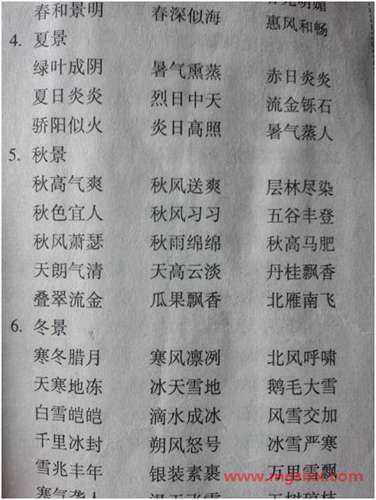 春和景明 春深似海 惠风和畅
4. 夏景
绿叶成阴 暑气熏蒸 赤日炎炎
夏日炎炎 烈日中天 流金铄石
骄阳似火 炎日高照 暑气蒸人
5. 秋景
秋高气爽 秋风送爽 层林尽染
秋色宜人 秋风习习 五谷丰登
秋风萧瑟 秋雨绵绵 秋高马肥
天朗气清 天高云淡 丹桂飘香
叠翠流金 瓜果飘香 北雁南飞
6. 冬景
寒冬腊月 寒风凛冽 北风呼啸
天寒地冻 冰天雪地 鹅毛大雪
白雪皑皑 滴水成冰 风雪交加
千里冰封 朔风怒号 冰雪严寒
雪兆丰年 银装素裹 万里雪飘
寒气袭人